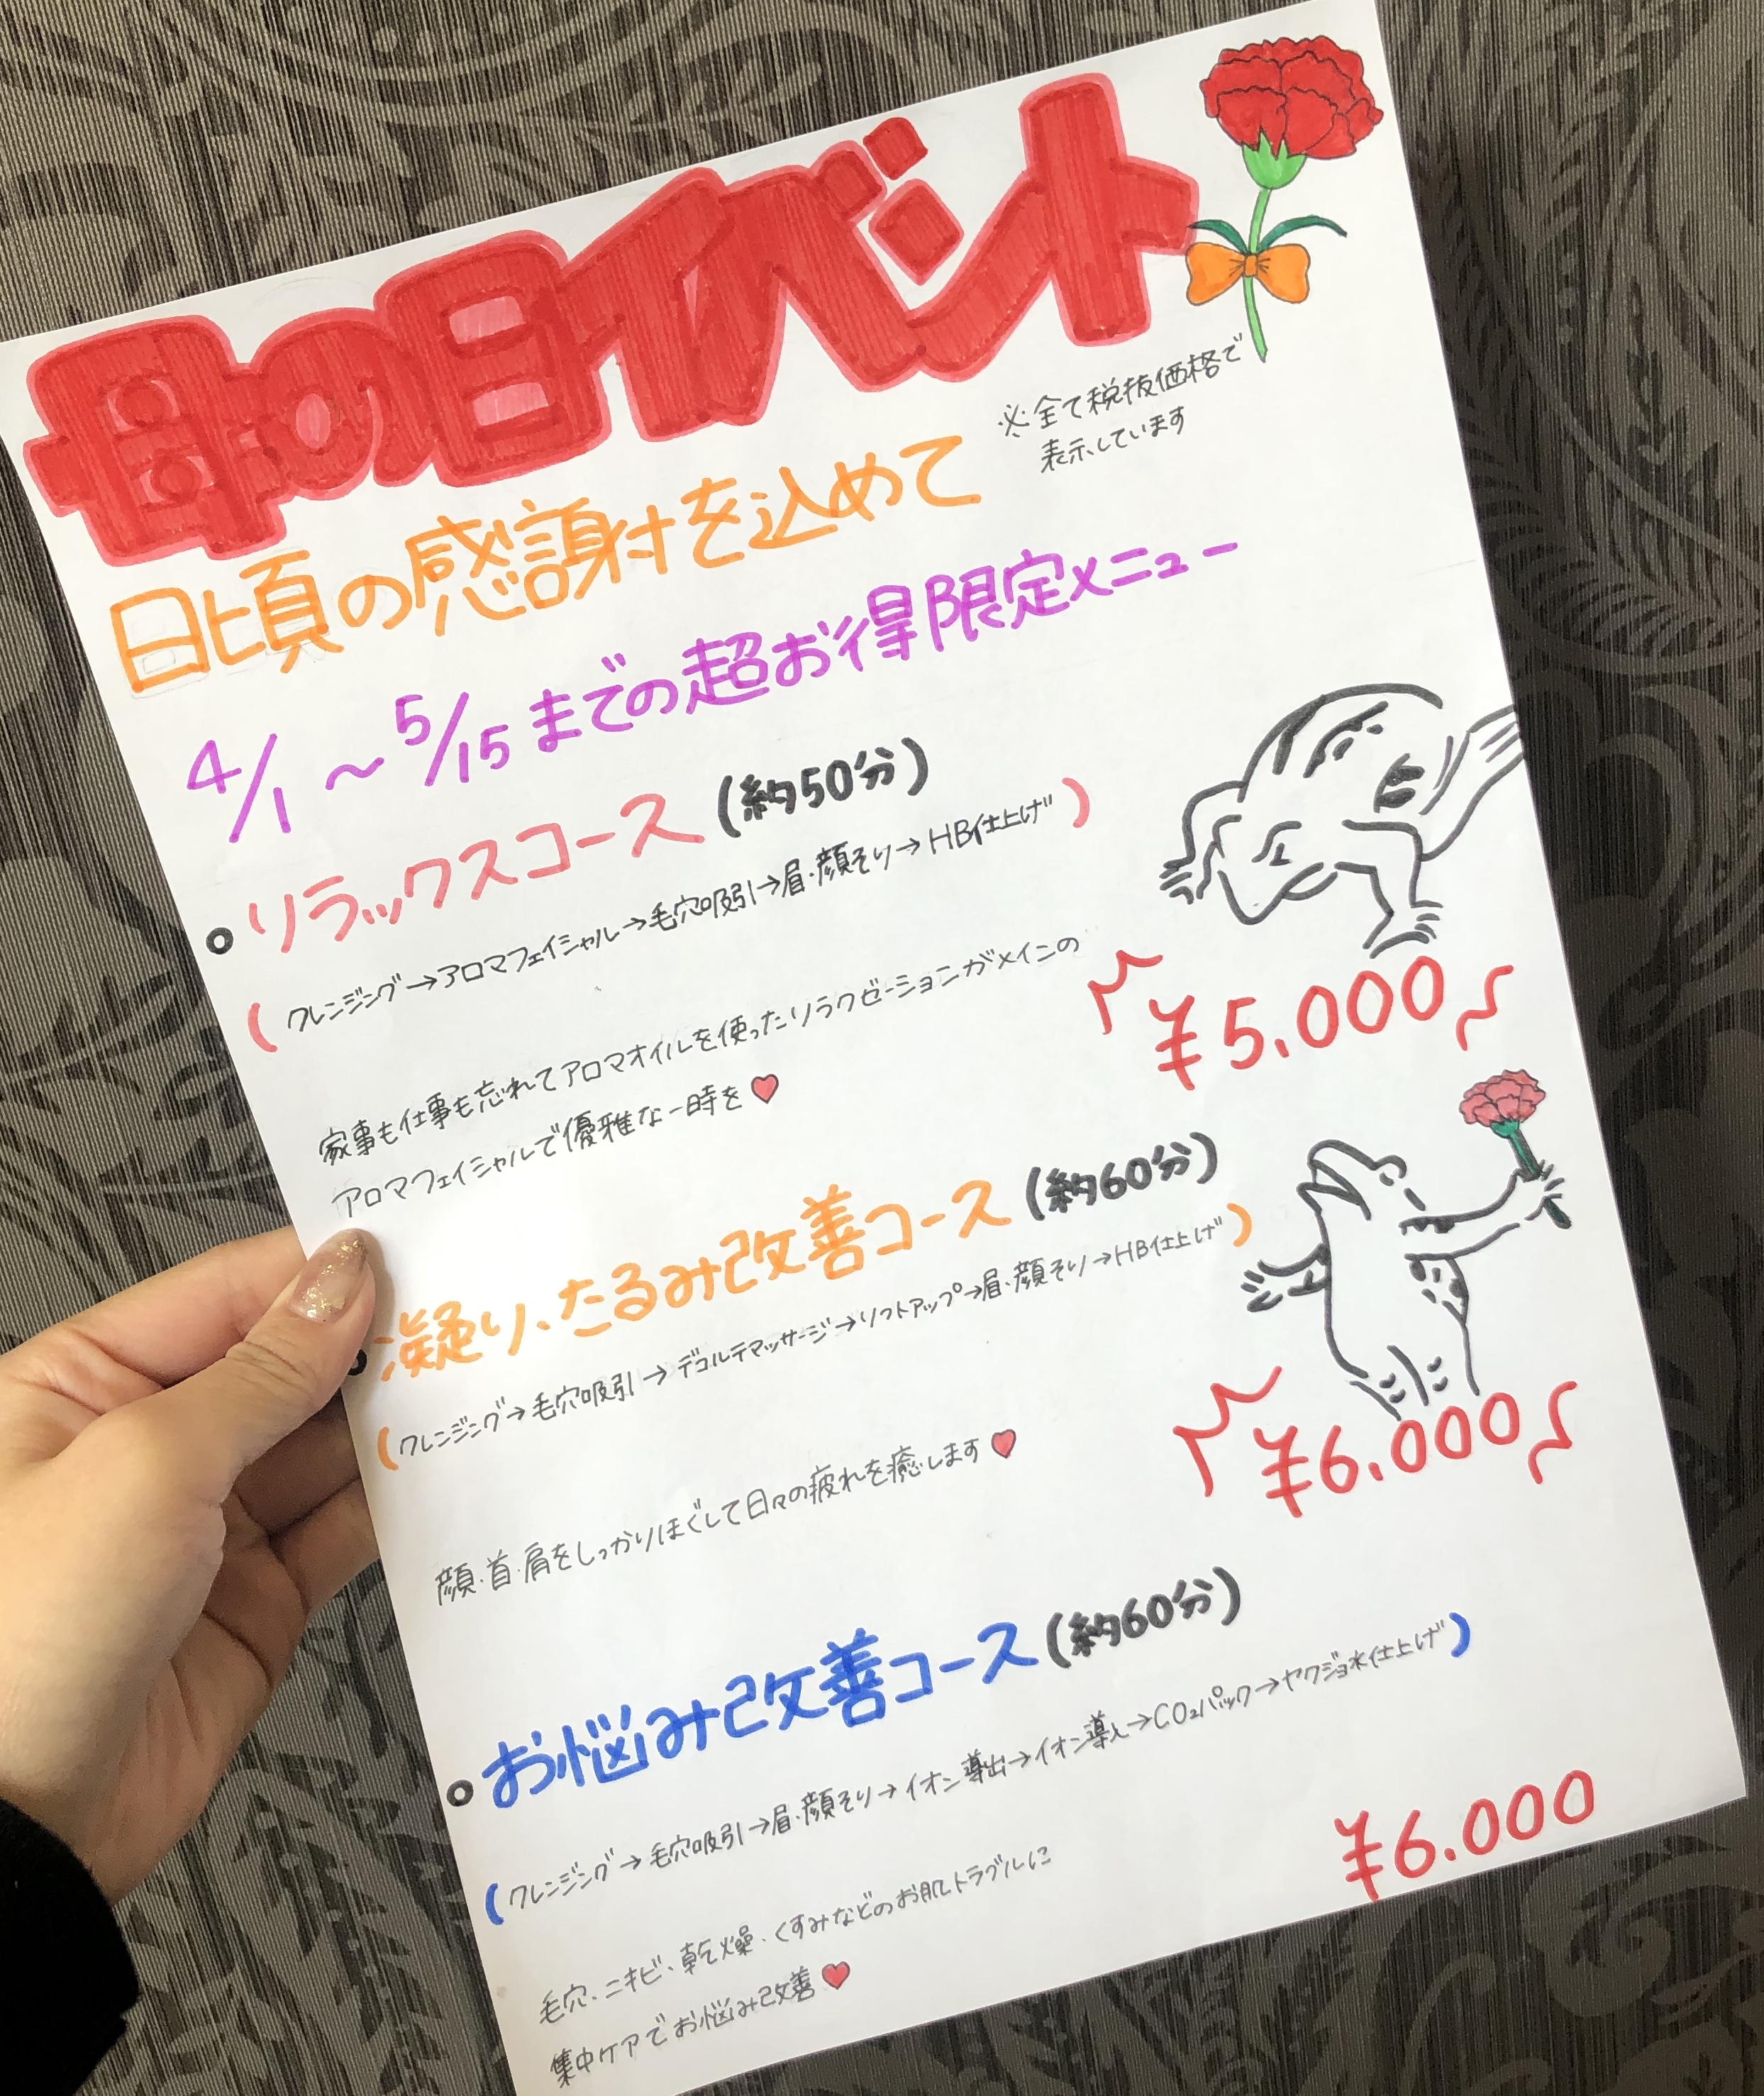 母の日イベント
※全て税抜価格で
表示しています
日頃の感謝を込めて
4/1～5/15までの超お得限定メニュー
リラックスコース(約50分)
(クレンジング→アロマフェイシャル→毛穴吸引→眉・顔そり→HB仕上げ)
家事も仕事も忘れてアロマオイルを使ったリラクゼーションがメインの
アロマフェイシャルで優雅な一時を♥
¥5.000
凝り、たるみ改善コース(約60分)
(クレンジング→毛穴吸引→デコルテマッサージ→リフトアップ→眉・顔そり→HB仕上げ)
顔・首・肩をしっかりほぐして日々の疲れを癒します♥
¥6.000
お悩み改善コース(約60分)
(クレンジング→毛穴吸引→眉・顔そり→イオン導出→イオン導入→CO₂パック→ヤクジョ水仕上げ)
毛穴、ニキビ、乾燥、くすみなどのお肌トラブルに
集中ケアでお悩み改善♥
¥6.000